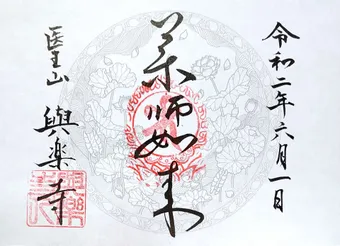 令和二年六月一日
薬師如来
医王山
與楽寺